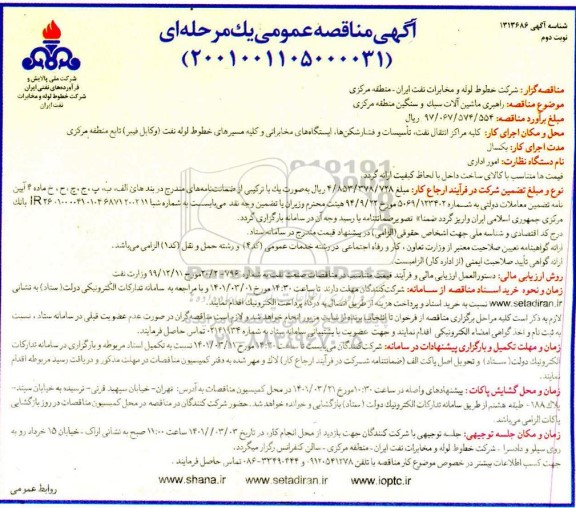 شناسه آگهی ۱۳۱۳۶۸۶
نوبت دوم
آگهی مناقصه عمومی یک مرحله‌ای
(۲۰۰۱۰۰۱۱۰۵۰۰۰۰۳۱)
شرکت ملی پالایش و
فرآورده‌های نفتی ایران
شرکت خطوط لوله و مخابرات
نفت ایران
مناقصه‌گزار: شرکت خطوط لوله و مخابرات نفت ایران - منطقه مرکزی
موضوع مناقصه: راهبری ماشین آلات سبک و سنگین منطقه مرکزی
مبلغ برآورد مناقصه: ۹۷/۰۶۷/۵۷۴/۵۵۴ ریال
محل و مکان اجرای کار: کلیه مراکز انتقال نفت، تأسیسات و فشارشکن‌ها، ایستگاه‌های مخابراتی و کلیه مسیرهای خطوط لوله نفت (وکابل فیبر) تابع منطقه مرکزی
مدت اجرای کار: یکسال
نام دستگاه نظارت: امور اداری
قیمت ها متناسب با کالای ساخت داخل با لحاظ کیفیت ارائه گردد
نوع و مبلغ تضمین شرکت در فرآیند ارجاع کار: مبلغ ۴/۸۵۳/۳۷۸/۷۲۸ ریال به‌صورت یک یا ترکیبی از ضمانتنامه‌های مندرج در بند های الف، ب، پ، ج، چ، ح، خ ماده ۴ آیین
نامه تضمین معاملات دولتی به شماره ۱۲۳۴۰۲/ت۵۰۶۵۹ه مورخ ۹۴/۹/۲۲ هیئت محترم وزیران یا تضمین وجه نقد می‌بایست به شماره شبا IR بانک
مرکزی جمهوری اسلامی ایران واریز گردد ضمنا تصویر ضمانتنامه یا رسید وجه آن در سامانه بارگزاری گردد.
درج کد اقتصادی و شناسه ملی جهت اشخاص حقوقی (الزامی) در پیشنهاد قیمت مندرج در سامانه ستاد.
ارائه گواهینامه تعیین صلاحیت معتبر از وزارت تعاون، کار و رفاه اجتماعی در رشته خدمات عمومی (کد۴) و رشته حمل و نقل (کد۱) الزامی می‌باشد.
ارائه گواهی تأیید صلاحیت ایمنی (از اداره کار) الزامیست.
روش ارزیابی مالی: دستورالعمل ارزیابی مالی و فرآیند قیمت متناسب در مناقصات وزارت نفت به شماره مورخ ۹۹/۱۲/۱۱ وزارت نفت
زمان و نحوه خرید اسناد مناقصه از سامانه: شرکت‌کنندگان مهلت دارند تا ساعت ۱۴:۳۰ مورخ ۱۴۰۱/۰۳/۰۱ و با مراجعه به سامانه تدارکات الکترونیکی دولت (ستاد) به نشانی
www.setadiran.ir نسبت به خرید اسناد و پرداخت هزینه از طریق اتصال به درگاه پرداخت الکترونیک اقدام نمایند.
لازم به ذکر است کلیه مراحل برگزاری مناقصه از فرخوان تا انتخاب برنده از سایت مزبور انجام خواهد شد و لازم است مناقصه‌گران در صورت عدم عضویت قبلی در سامانه ستاد، نسبت
به ثبت نام و اخذ گواهی امضاء الکترونیکی اقدام نمایند و جهت عضویت با پشتیبانی سامانه ستاد به شماره ۴۱۹۳۴-۰۲۱ تماس حاصل فرمایند.
زمان و مهلت تکمیل و بارگزاری پیشنهادات در سامانه: شرکت‌کنندگان نسبت به تکمیل اسناد مربوطه و بارگزاری در سامانه تدارکات
الکترونیک دولت (ستاد) و تحویل اصل پاکت الف (ضمانتنامه شرکت در فرآیند ارجاع کار) لاک و مهر شده به دفتر کمیسیون مناقصات در مهلت مذکور و دریافت رسید مربوطه اقدام
نمایند.
زمان و محل گشایش پاکات: پیشنهادهای واصله در ساعت ۱۰:۳۰ مورخ ۱۴۰۱/۰۳/۲۱ در محل کمیسیون مناقصات به آدرس: تهران- خیابان سپهبد قرنی- نرسیده به خیابان سپند-
پلاک ۱۸۸- طبقه هشتم از طریق سامانه تدارکات الکترونیک دولت (ستاد) بازگشایی و خوانده خواهد شد. حضور شرکت کنندگان در مناقصه در محل کمیسیون مناقصات در روز بازگشایی
پاکات الزامی می‌باشد.
زمان و مکان جلسه توجیهی: جلسه توجیهی با شرکت کنندگان جهت بازدید از محل انجام کار، در تاریخ ۱۴۰۱/۰۳/۰۳ ساعت ۱۱:۰۰ صبح به نشانی اراک - خیابان ۱۵ خرداد رو به
روی سیلو و دادسرا - شرکت خطوط لوله و مخابرات نفت ایران - منطقه مرکزی - سالن کنفرانس رگزار میگردد.
جهت کسب اطلاعات بیشتر در خصوص موضوع کار مناقصه با تلفن ۰۹۱۲۰۵۴۱۲۷۸ و ۳۳۴۹۰۴۴۴-۰۸۶ تماس حاصل فرمایند.
www.shana.ir www.setadiran.ir www.ioptc.ir
روابط عمومی